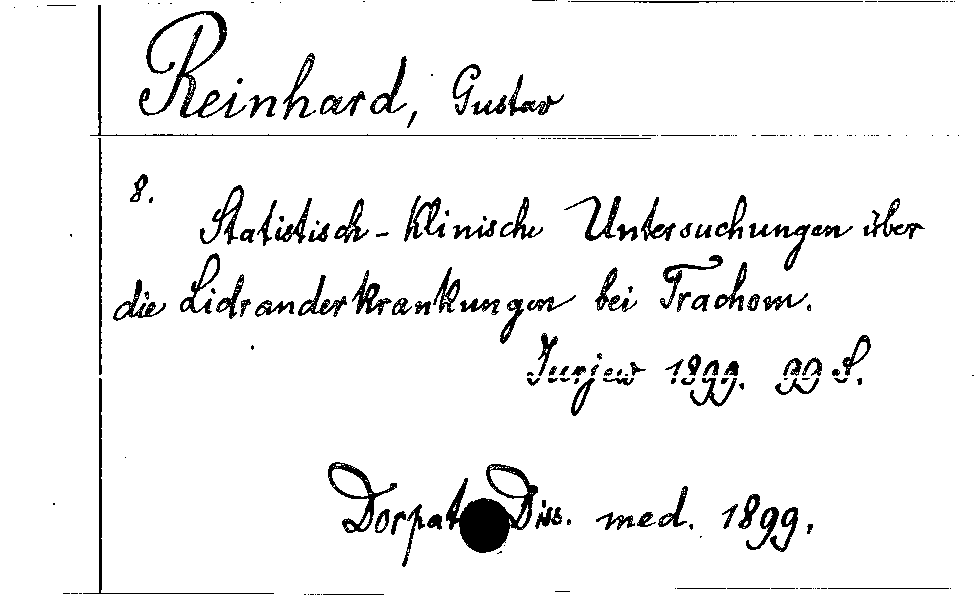 Reinhard, Gustav
8.
Statistisch-klinische Untersuchungen über
die Lidranderkrankungen bei Trachom.
Jurjew 1899. 99 S.
Dorpat Diss. med. 1899.